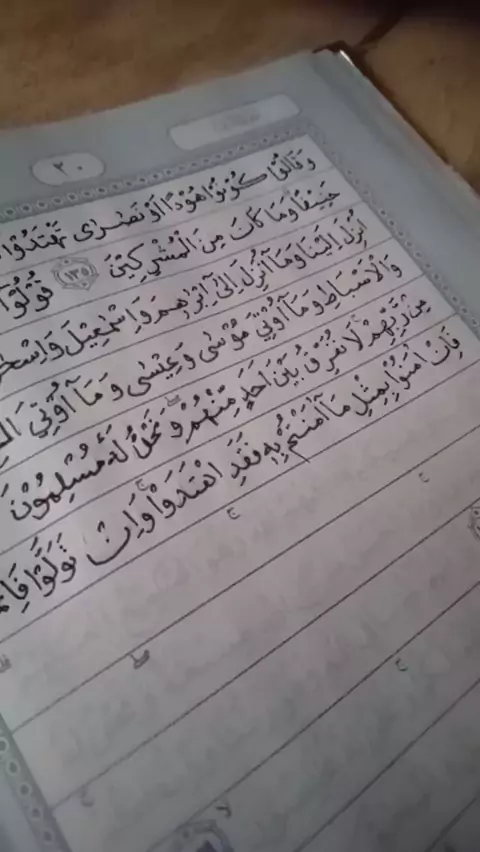 ٢٠
وَقَالُوْا كُوْنُوْا هُوْدًا اَوْ نَصٰرٰى تَهْتَدُوْا
حَنِيْفًا وَمَا كَانَ مِنَ الْمُشْرِكِيْنَ ١٣٥ قُوْلُوْٓا
اُنْزِلَ اِلَيْنَا وَمَآ اُنْزِلَ اِلٰٓى اِبْرٰهٖمَ وَاِسْمٰعِيْلَ وَاِسْحٰقَ
وَالْاَسْبَاطِ وَمَآ اُوْتِيَ مُوْسٰى وَعِيْسٰى وَمَآ اُوْتِيَ
مِنْ رَّبِّهِمْۚ لَا نُفَرِّقُ بَيْنَ اَحَدٍ مِّنْهُمْۖ وَنَحْنُ لَهٗ مُسْلِمُوْنَ
فَاِنْ اٰمَنُوْا بِمِثْلِ مَآ اٰمَنْتُمْ بِهٖ فَقَدِ اهْتَدَوْاۚ وَاِنْ تَوَلَّوْا